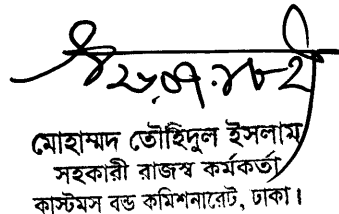 মোহাম্মদ তৌহিদুল ইসলাম
সহকারী রাজস্ব কর্মকর্তা
কাস্টমস বন্ড কমিশনারেট, ঢাকা।